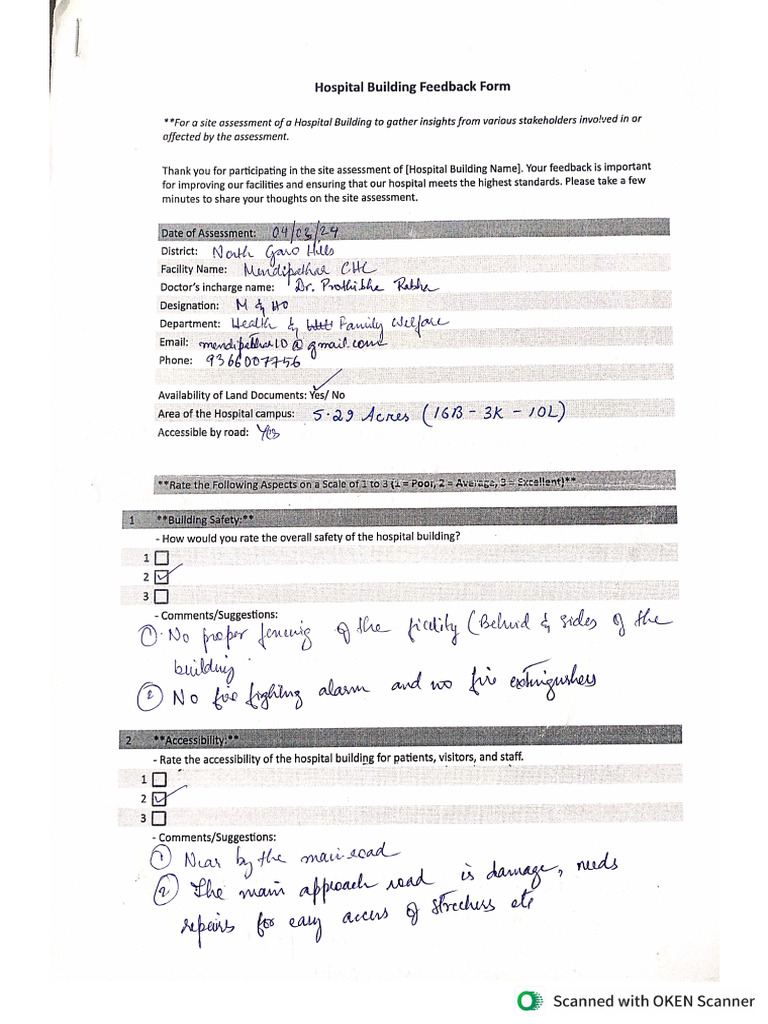 Hospital Building Feedback Form
**For a site assessment of a Hospital Building to gather insights from various stakeholders involved in or
affected by the assessment.
Thank you for participating in the site assessment of [Hospital Building Name]. Your feedback is important
for improving our facilities and ensuring that our hospital meets the highest standards. Please take a few
minutes to share your thoughts on the site assessment.
Date of Assessment: 04/03/24
District: North Garo Hills
Facility Name: Mendipathar CHC
Doctor's incharge name: Dr. Prothibha Rabha
Designation: M & HO
Department: Health & Family Welfare
Email: mendipathar10@gmail.com
Phone: 9366007756
Availability of Land Documents: Yes/ No
Area of the Hospital campus: 5.29 Acres (16B - 3K - 10L)
Accessible by road: Yes
**Rate the Following Aspects on a Scale of 1 to 3 (1 = Poor, 2 = Average, 3 = Excellent)**
1 **Building Safety:**
- How would you rate the overall safety of the hospital building?
1
2
3
- Comments/Suggestions:
1. No proper fencing of the ficility (Behind & sides of the
building
2 No fire fighting alarm and no fire extinguishers
2 **Accessibility:**
- Rate the accessibility of the hospital building for patients, visitors, and staff.
1
2
3
- Comments/Suggestions:
1 Near by the main road
2 The main approach road is damage, needs
repairs for easy access of strechers etc
Scanned with OKEN Scanner